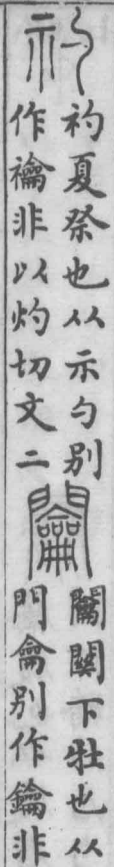 礿
礿夏祭也从示勺別
作禴非以灼切文二
闟
闟關下牡也从
門龠別作鑰非